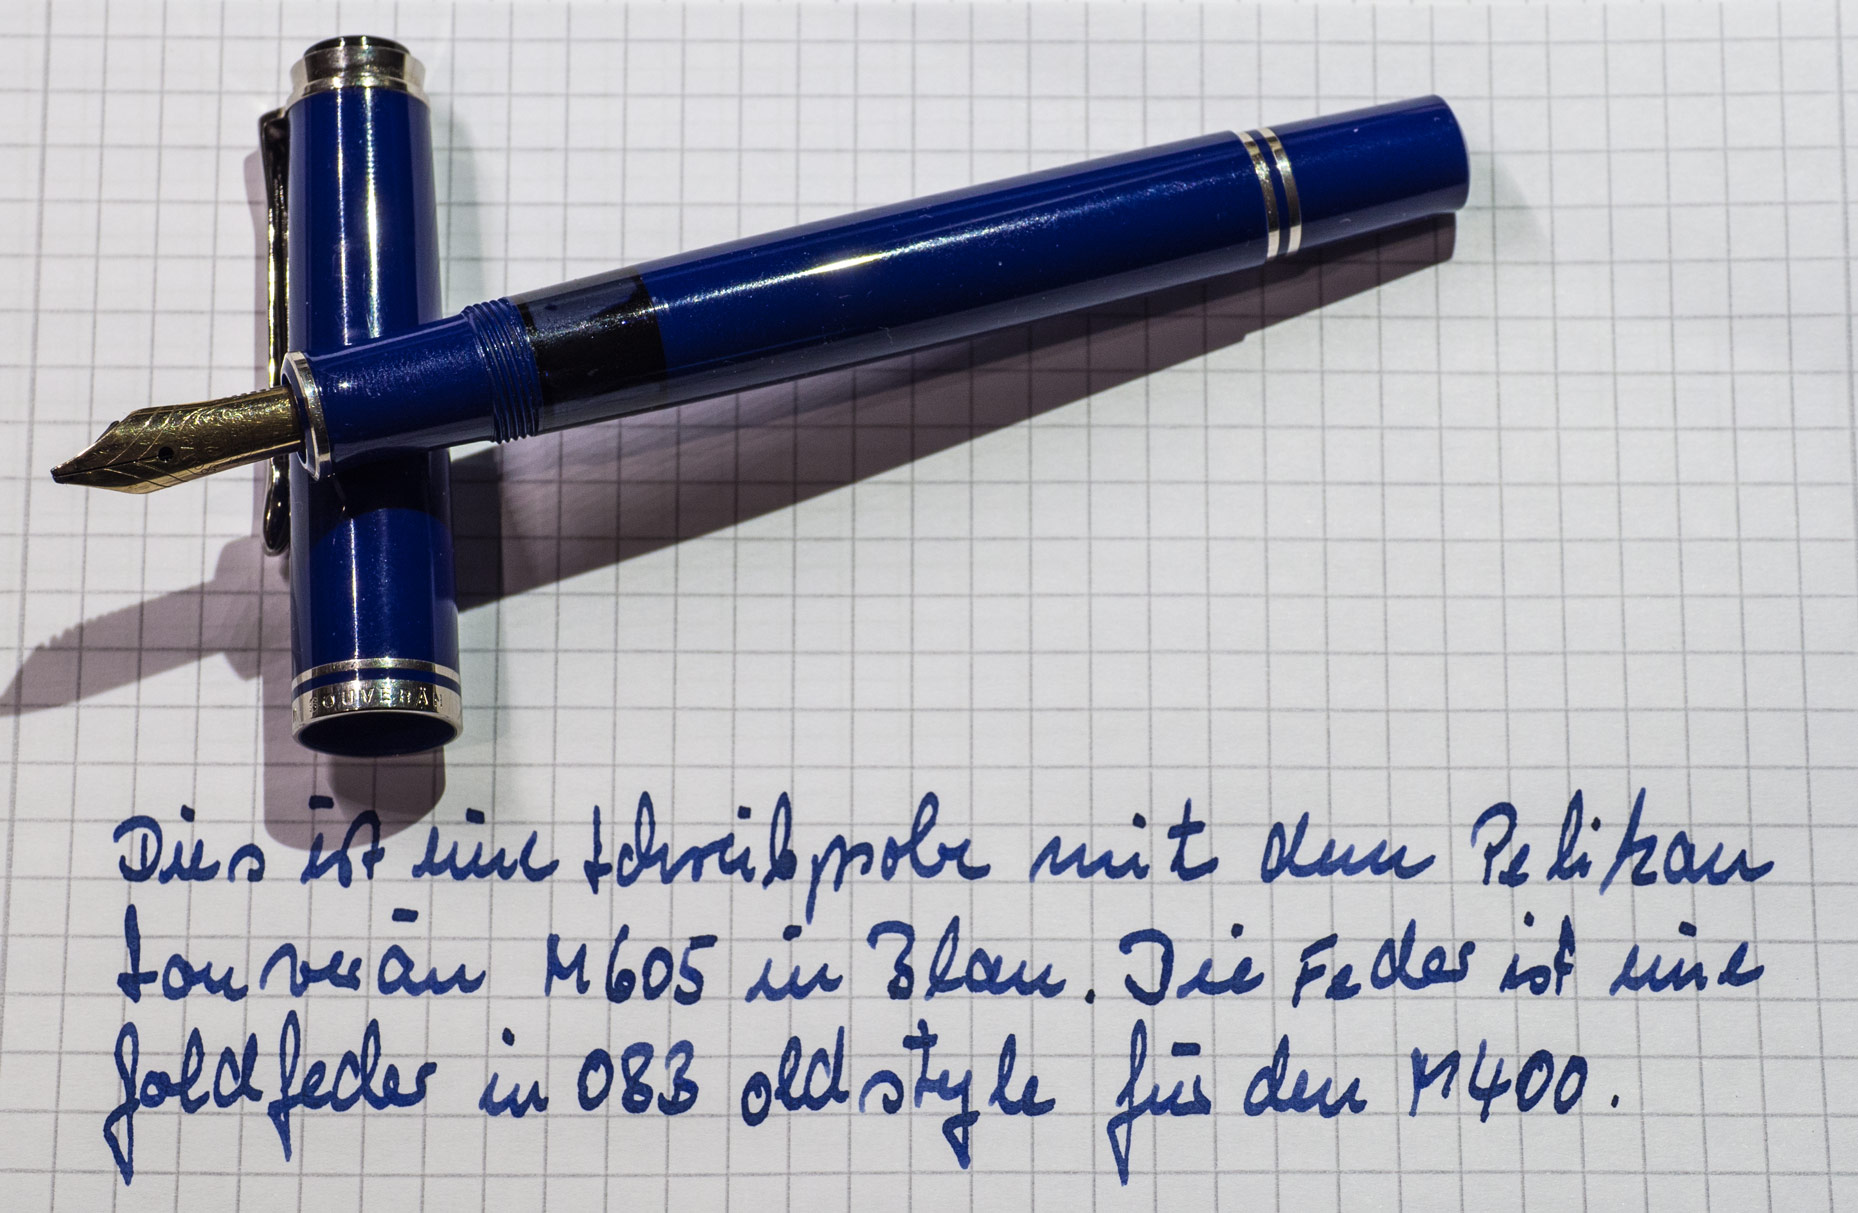 SOUVERÄN
Dies ist eine Schreibprobe mit dem Pelikan
Souverän M605 in Blau. Die Feder ist eine
Goldfeder in OBB oldstyle für den M400.